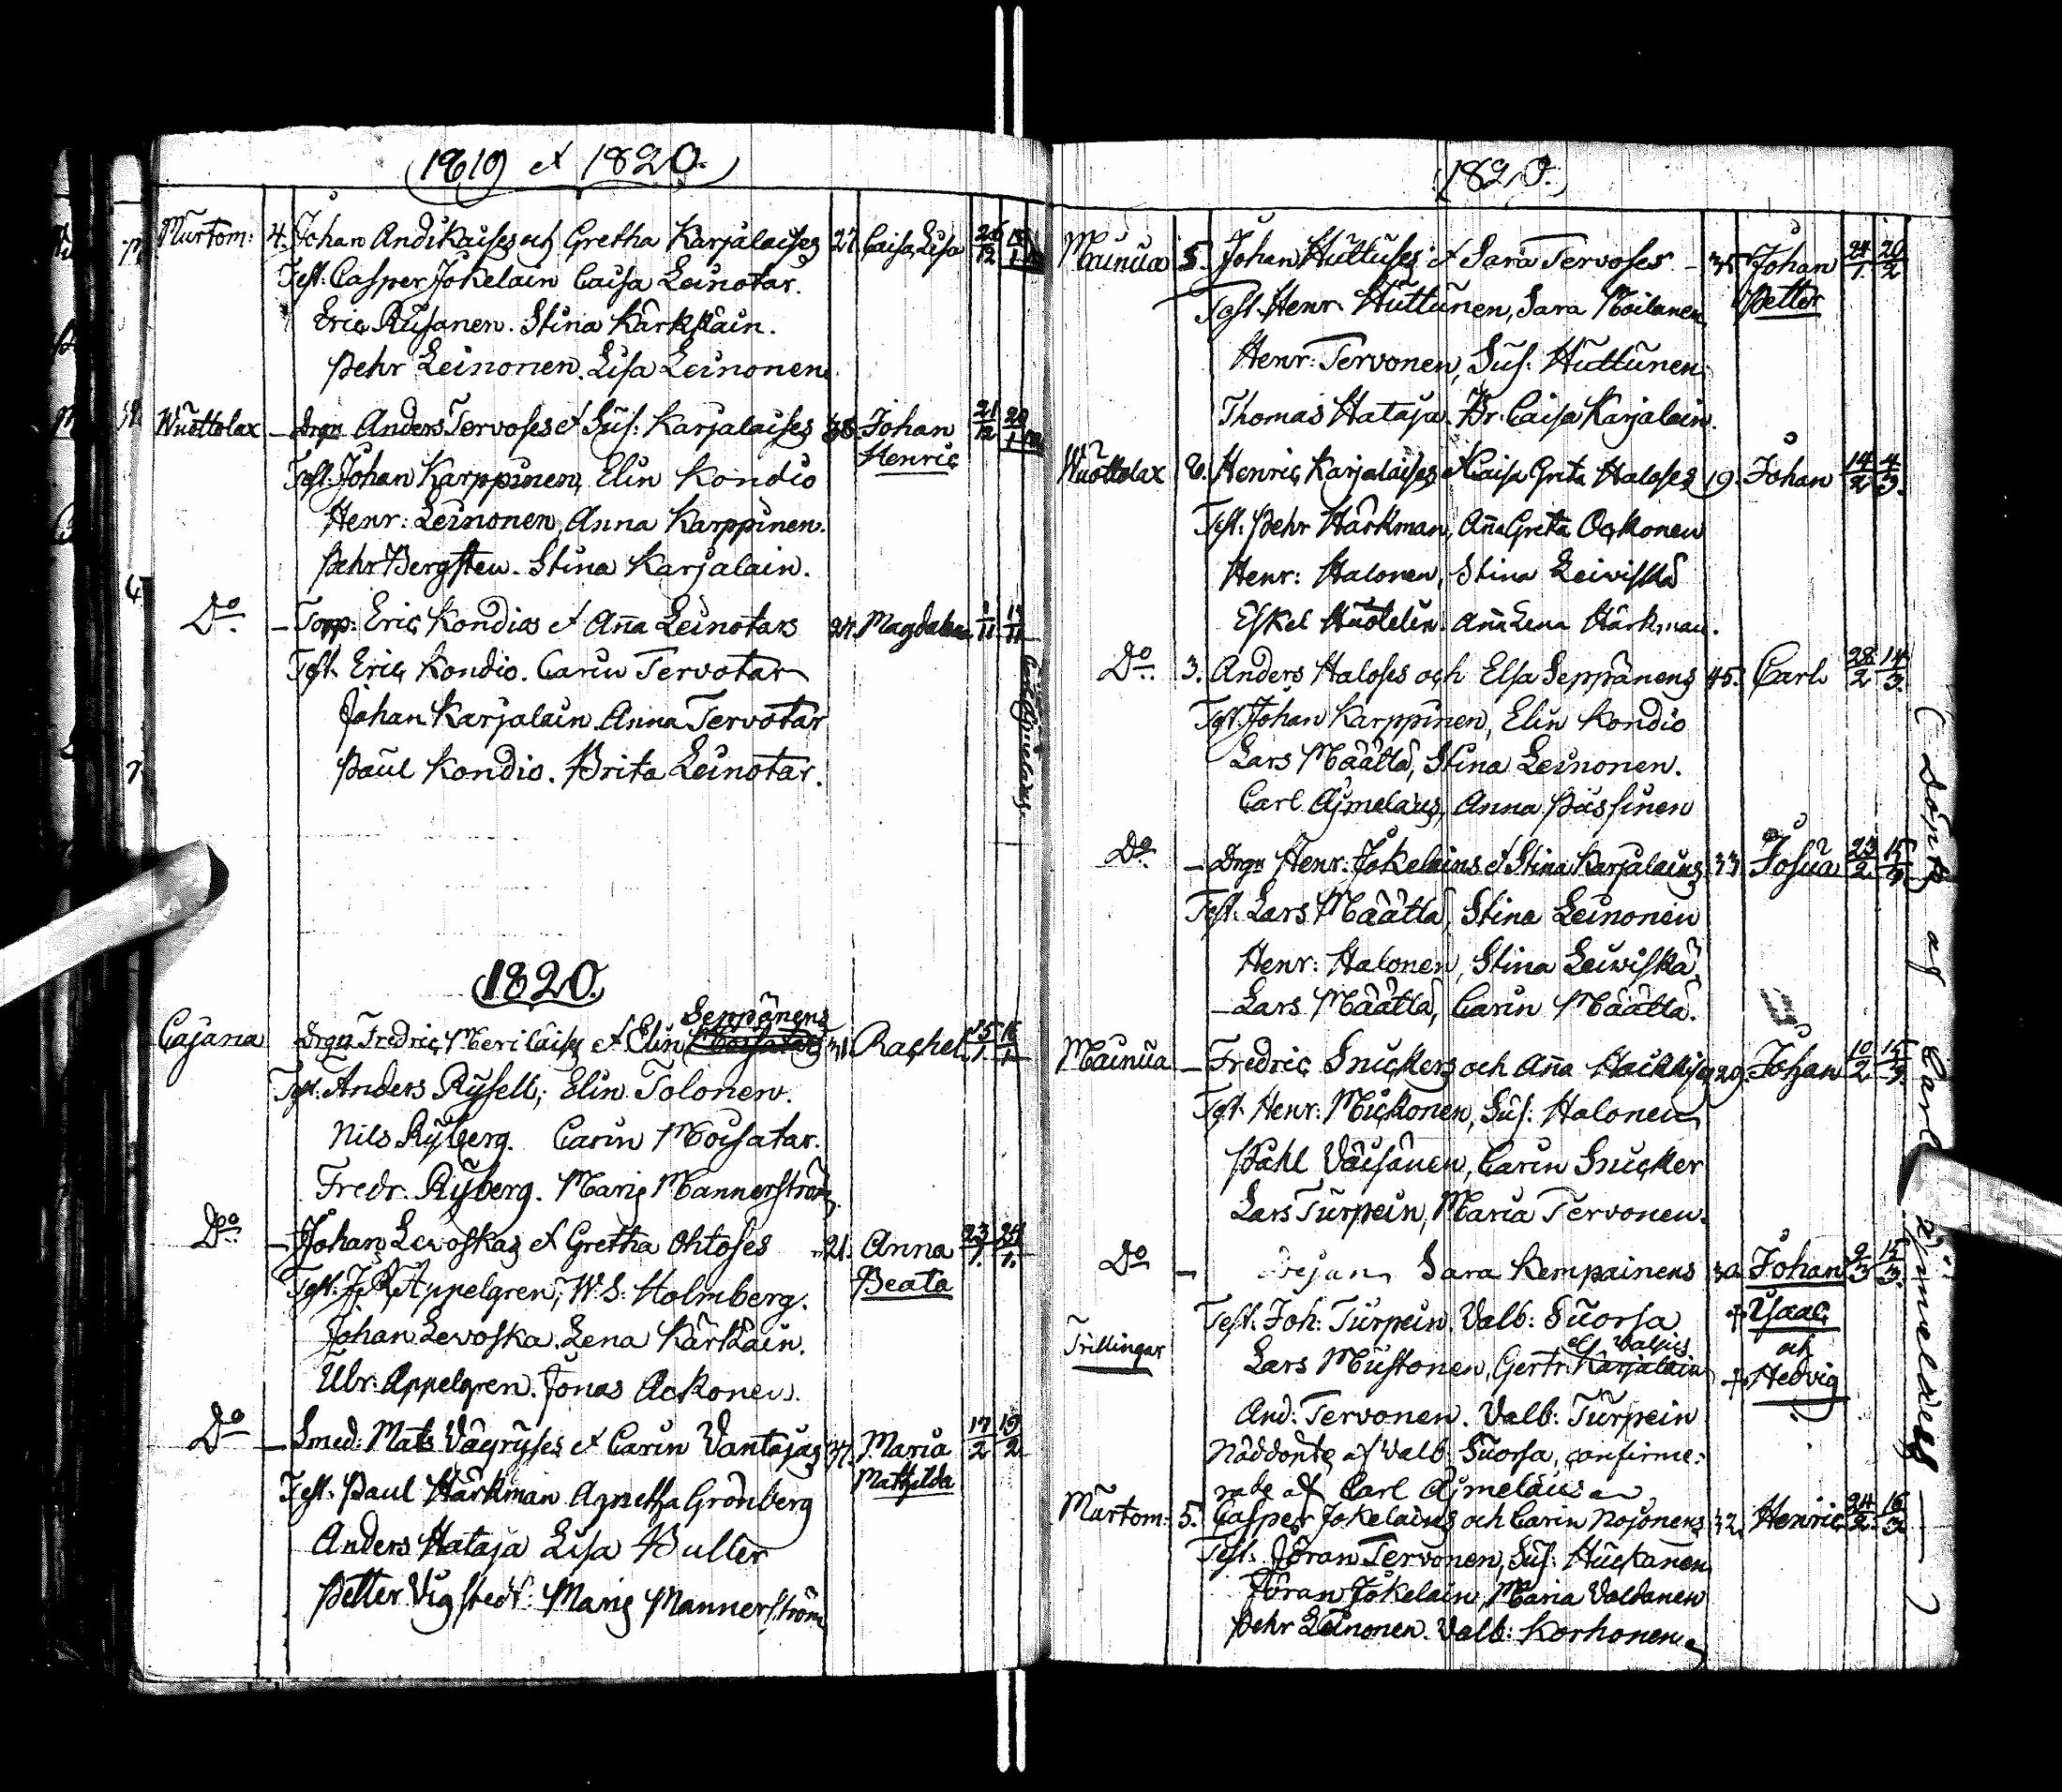 1819 et 1820.
Murtom: 4. Johan Andikaises och Gretha Karjalaises 27. Caisa Lisa 26/12
Test. Casper Jokelain Caisa Leinotar.
Eric Rusanen. Stina Kärkkäin.
Pehr Leinonen. Lisa Leinonen.
Wuottolax – Drgn Anders Tervoses et Sus: Karjalaises 38. Johan 21/12 20/1
Henric
Test. Johan Karppinen, Elin Kondio
Henr: Leinonen, Anna Karppinen.
Pehr Bergsten. Stina Karjalain.
Do – Torp: Eric Kondios et Anna Leinotars 27. Magdalena
Test. Eric Kondio. Carin Tervotar
Johan Karjalain. Anna Tervotar
Paul Kondio. Brita Leinotar.
Carl Ajmelaeus.
1820.
Seppänens
Cajana Drgn Fredric Meriläises et Elin 31. Rachel 15/1 16/1
Test. Anders Rysell, Elin Tolonen.
Nils Ryberg. Carin Moisatar.
Fredr. Ryberg. Marie Mannerström
Do – Johan Levoskas et Gretha Ohtoses 21. Anna 23/1. 24/1.
Beata
Test. J. R. Appelgren, W. S. Holmberg.
Johan Levoska. Lena Kärkkäin.
Ulr. Appelgren. Jonas Ackonen.
Do – Smed: Mats Väyryses et Carin Vantajas 37. Maria 17/2 19/2
Mathilda
Test. Paul Härkman Agnetha Grönberg
Anders Hataja Lisa Buller
Petter Vigstedt. Marie Mannerström
1820.
Mainua 5. Johan Huttuses et Sara Tervoses – 35 Johan 24/1. 20/2
Petter
Test. Henr. Huttunen, Sara Moilanen,
Henr: Tervonen, Sus: Huttunen.
Thomas Hataja. Br. Caisa Karjalain.
Wuottolax 6. Henric Karjalaises et Caisa Greta Haloses 19. Johan 14/2 4/3.
Test: Pehr Härkman, Anna Greta Ockonen
Henr: Halonen, Stina Leiviskä
Eskel Huotelin. Anna Lena Härkman.
Do 3. Anders Haloses och Elsa Seppänens 45. Carl 28/2 14/3.
Test. Johan Karppinen, Elin Kondio
Lars Määttä, Stina Leinonen.
Carl Ajmelaeus, Anna Pussinen
Do – Drgn Henr: Jokelains et Stina Karjalains 33. Josua 23/2 15/3
Test. Lars Määttä, Stina Leinonen
Henr: Halonen, Stina Leiwiskä,
Lars Määttä, Carin Määttä.
Mainua – Fredric Snickers och Anna 29. Johan 10/2 15/3
Test. Henr: Mickonen, Sus: Halonen
Påhl Väisänen, Carin Snicker
Lars Turpein, Maria Tervonen.
Do – Pejan Sara Kempainens 30. Johan 9/3 15/3.
Test. Joh: Turpein. Valb: Suorsa + Isaac
Trillingar
Lars Mustonen, Gertr: Karjalain och
+ Hedvig
And: Tervonen. Valb: Turpein
Nöddöpte af Valb: Suorsa, confirme:
rade af Carl Ajmelaeus
Murtom: 5. Casper Jokelains och Carin Nojonens 32. Henric 24/2. 16/3
Test: Jöran Tervonen, Sus: Huckanen
Jöran Jokelain, Maria Valdanen
Pehr Leinonen. Valb: Korhonen
(Döpte af Carl Ajmelaeus —)